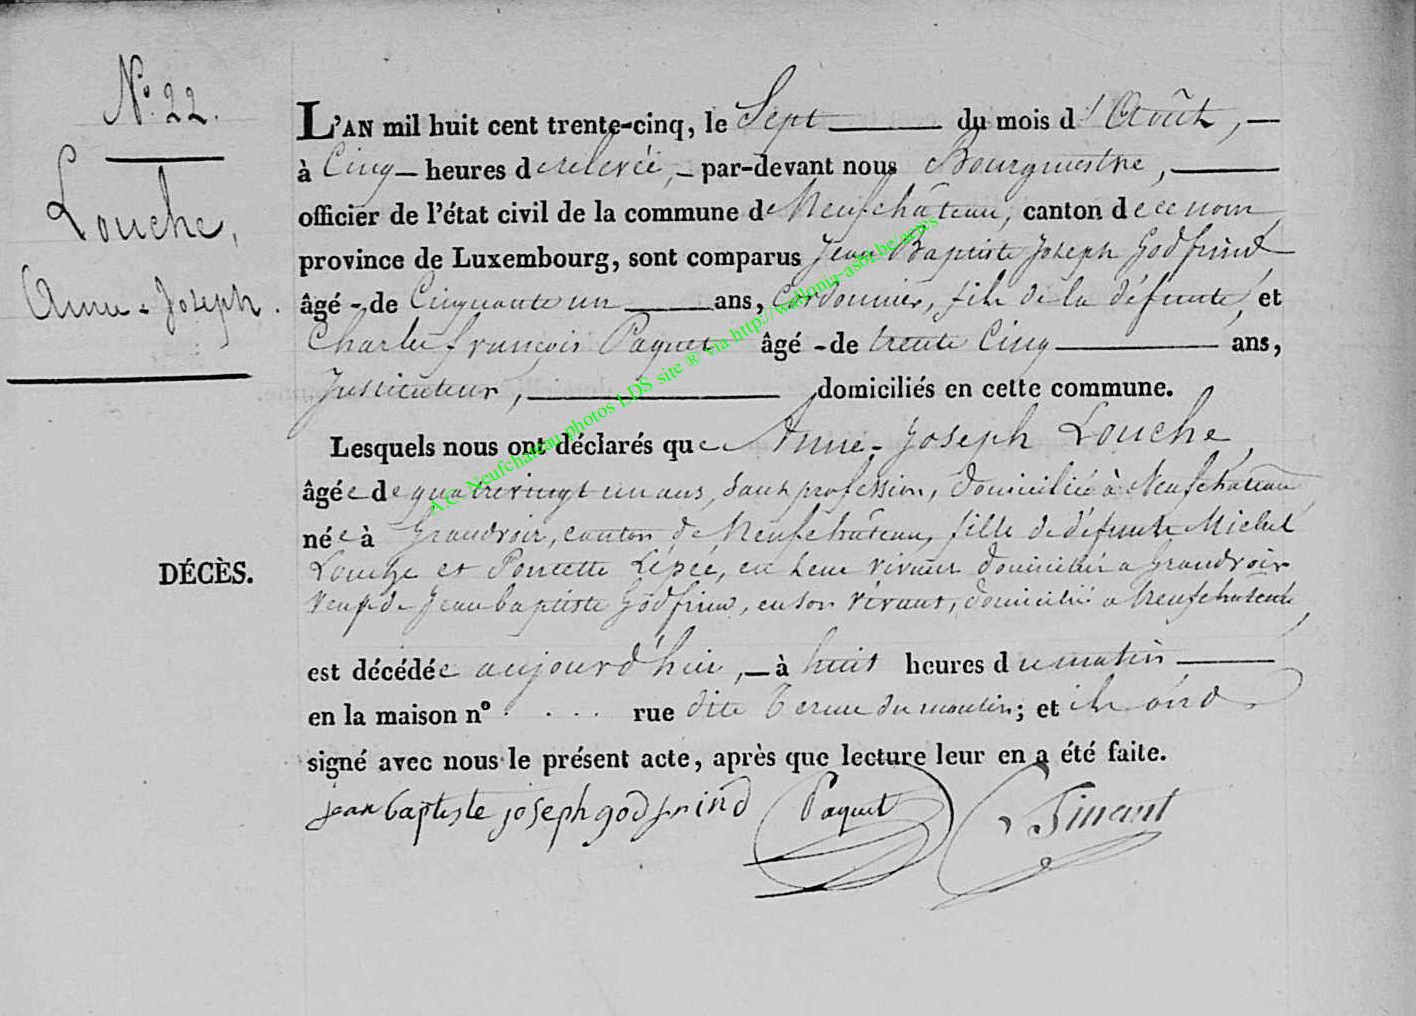 N° 22.
Louche,
Anne-Joseph.
DÉCÈS.
L'AN mil huit cent trente-cinq, le Sept du mois d'Août,
à Cinq heures de relevée, par-devant nous Bourgmestre,
officier de l'état civil de la commune de Neufchâteau, canton de ce nom
province de Luxembourg, sont comparus Jean Baptiste Joseph Godfrind
âgé - de Cinquante un ans, Cordonnier, fils de la défunte, et
Charles françois Paquet âgé - de trente Cinq ans,
Instituteur, domiciliés en cette commune.
Lesquels nous ont déclarés que Anne-Joseph Louche,
âgée de quatrevingt un ans, sans profession, domiciliée à Neufchâteau
née à Grandvoir, canton de Neufchâteau, fille de défunts Michel
Louche et Poncette Lépée, en leur vivant domiciliés a Grandvoir
Veuve de Jean baptiste Godfrind, en son vivant, domicilié a Neufchateau,
est décédée aujourd'hui, à huit heures du matin
en la maison n° . . . . rue dite du moulin; et ils ont
signé avec nous le présent acte, après que lecture leur en a été faite.
jean baptiste joseph godfrind Paquet
A.C. Neufchateau photos LDS site ® via http://wallonia-asbl.be/actes